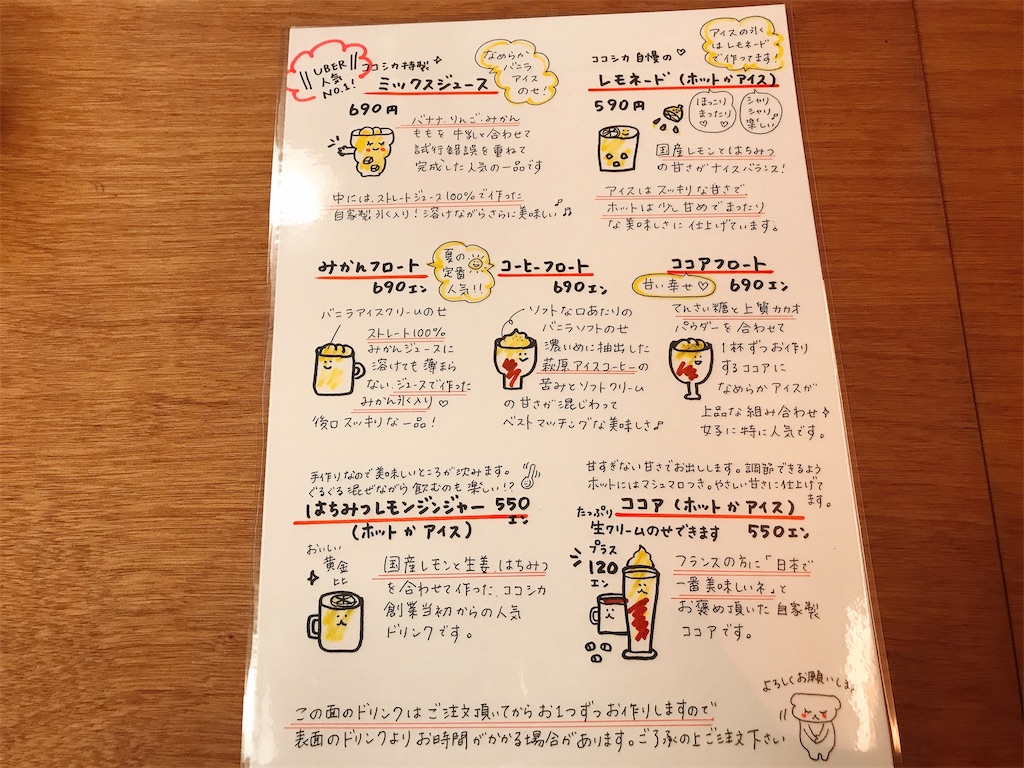 UBER
人気
NO.1!
ココシカ特製
ミックスジュース
なめらか
バニラ
アイス
のせ!
690円
バナナ、りんご、みかん
ももを牛乳と合わせて
試行錯誤を重ねて
完成した人気の一品です
中には、ストレートジュース100%で作った
自家製氷入り!溶けながらさらに美味しい♪♫
ココシカ自慢の♡
レモネード(ホットかアイス)
アイスの氷く
はレモネード
で作ってます!
590円
ほっこり
まったり
♡ ♡
シャリ
シャリ
楽しい♪
国産レモンとはちみつ
の甘さがナイスバランス!
アイスはスッキリな甘さで
ホットは少し甘めでまったり
な美味しさに仕上げています。
みかんフロート
690エン
夏の
定番
人気!!
バニラアイスクリームのせ
ストレート100%
みかんジュースに
溶けても薄まら
ない、ジュースで作った
みかん氷入り♡
後口スッキリな一品!
コーヒーフロート
690エン
ソフトな口あたりの
バニラソフトのせ
濃いめに抽出した
萩原アイスコーヒーの
苦みとソフトクリーム
の甘さが混じわって
ベストマッチングな美味しさ♪
ココアフロート
甘い幸せ♡
690エン
てんさい糖と上質カカオ
パウダーを合わせて
1杯ずつお作り
するココアに
なめらかアイスが
上品な組み合わせ
女子に特に人気です。
手作りなので美味しいところが沈みます。
ぐるぐる混ぜながら飲むのも楽しい!?
はちみつレモンジンジャー 550
エン
(ホットかアイス)
おいしい
黄金
比
国産レモンと生姜、はちみつ
を合わせて作った、ココシカ
創業当初からの人気
ドリンクです。
甘すぎない甘さでお出しします。調節できるよう
ホットにはマシュマロつき。やさしい甘さに仕上げて
ます。
ココア(ホットかアイス)
たっぷり
生クリームのせできます
550エン
プラス
120
エン
フランスの方に「日本で
一番美味しいネ」と
お褒め頂いた自家製
ココアです。
よろしくお願いします
この面のドリンクはご注文頂いてからお1つずつお作りしますので
表面のドリンクよりお時間がかかる場合があります。ご了承の上ご注文下さい